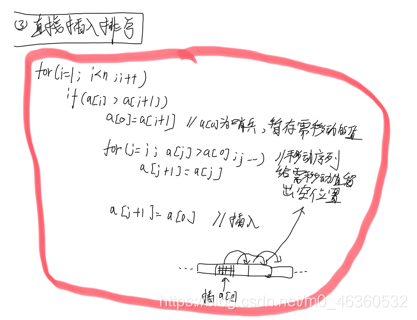 ③直接插入排序
for(i=1; i<n; i++)
if(a[i] > a[i+1])
a[0]=a[i+1] //a[0]为哨兵，暂存需移动的值
for(j=i; a[j]>a[0]; j--) //移动序列
a[j+1]=a[j]
给需移动值留
出空位置
a[j+1]=a[0] //插入
插a[0]
https://blog.csdn.net/m0_46360532